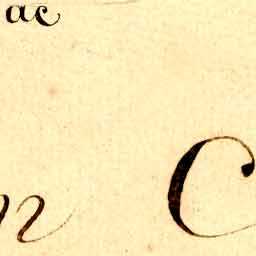 ac
n C